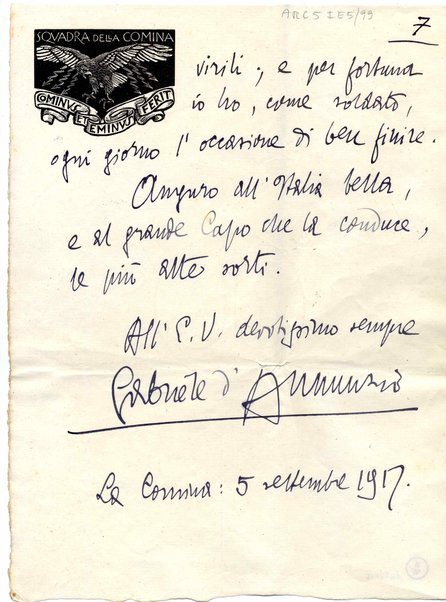 ARC5 IE5/99
7
SQVADRA DELLA COMINA
COMINVS ET EMINVS FERIT
virili; e per fortuna
io ho, come soldato,
ogni giorno l'occasione di ben finire.
Auguro all'Italia bella,
e al grande Capo che la conduce,
le più alte sorti.
All'E.V. devotissimo sempre
Gabriele d'Annunzio
La Comina: 5 settembre 1917.